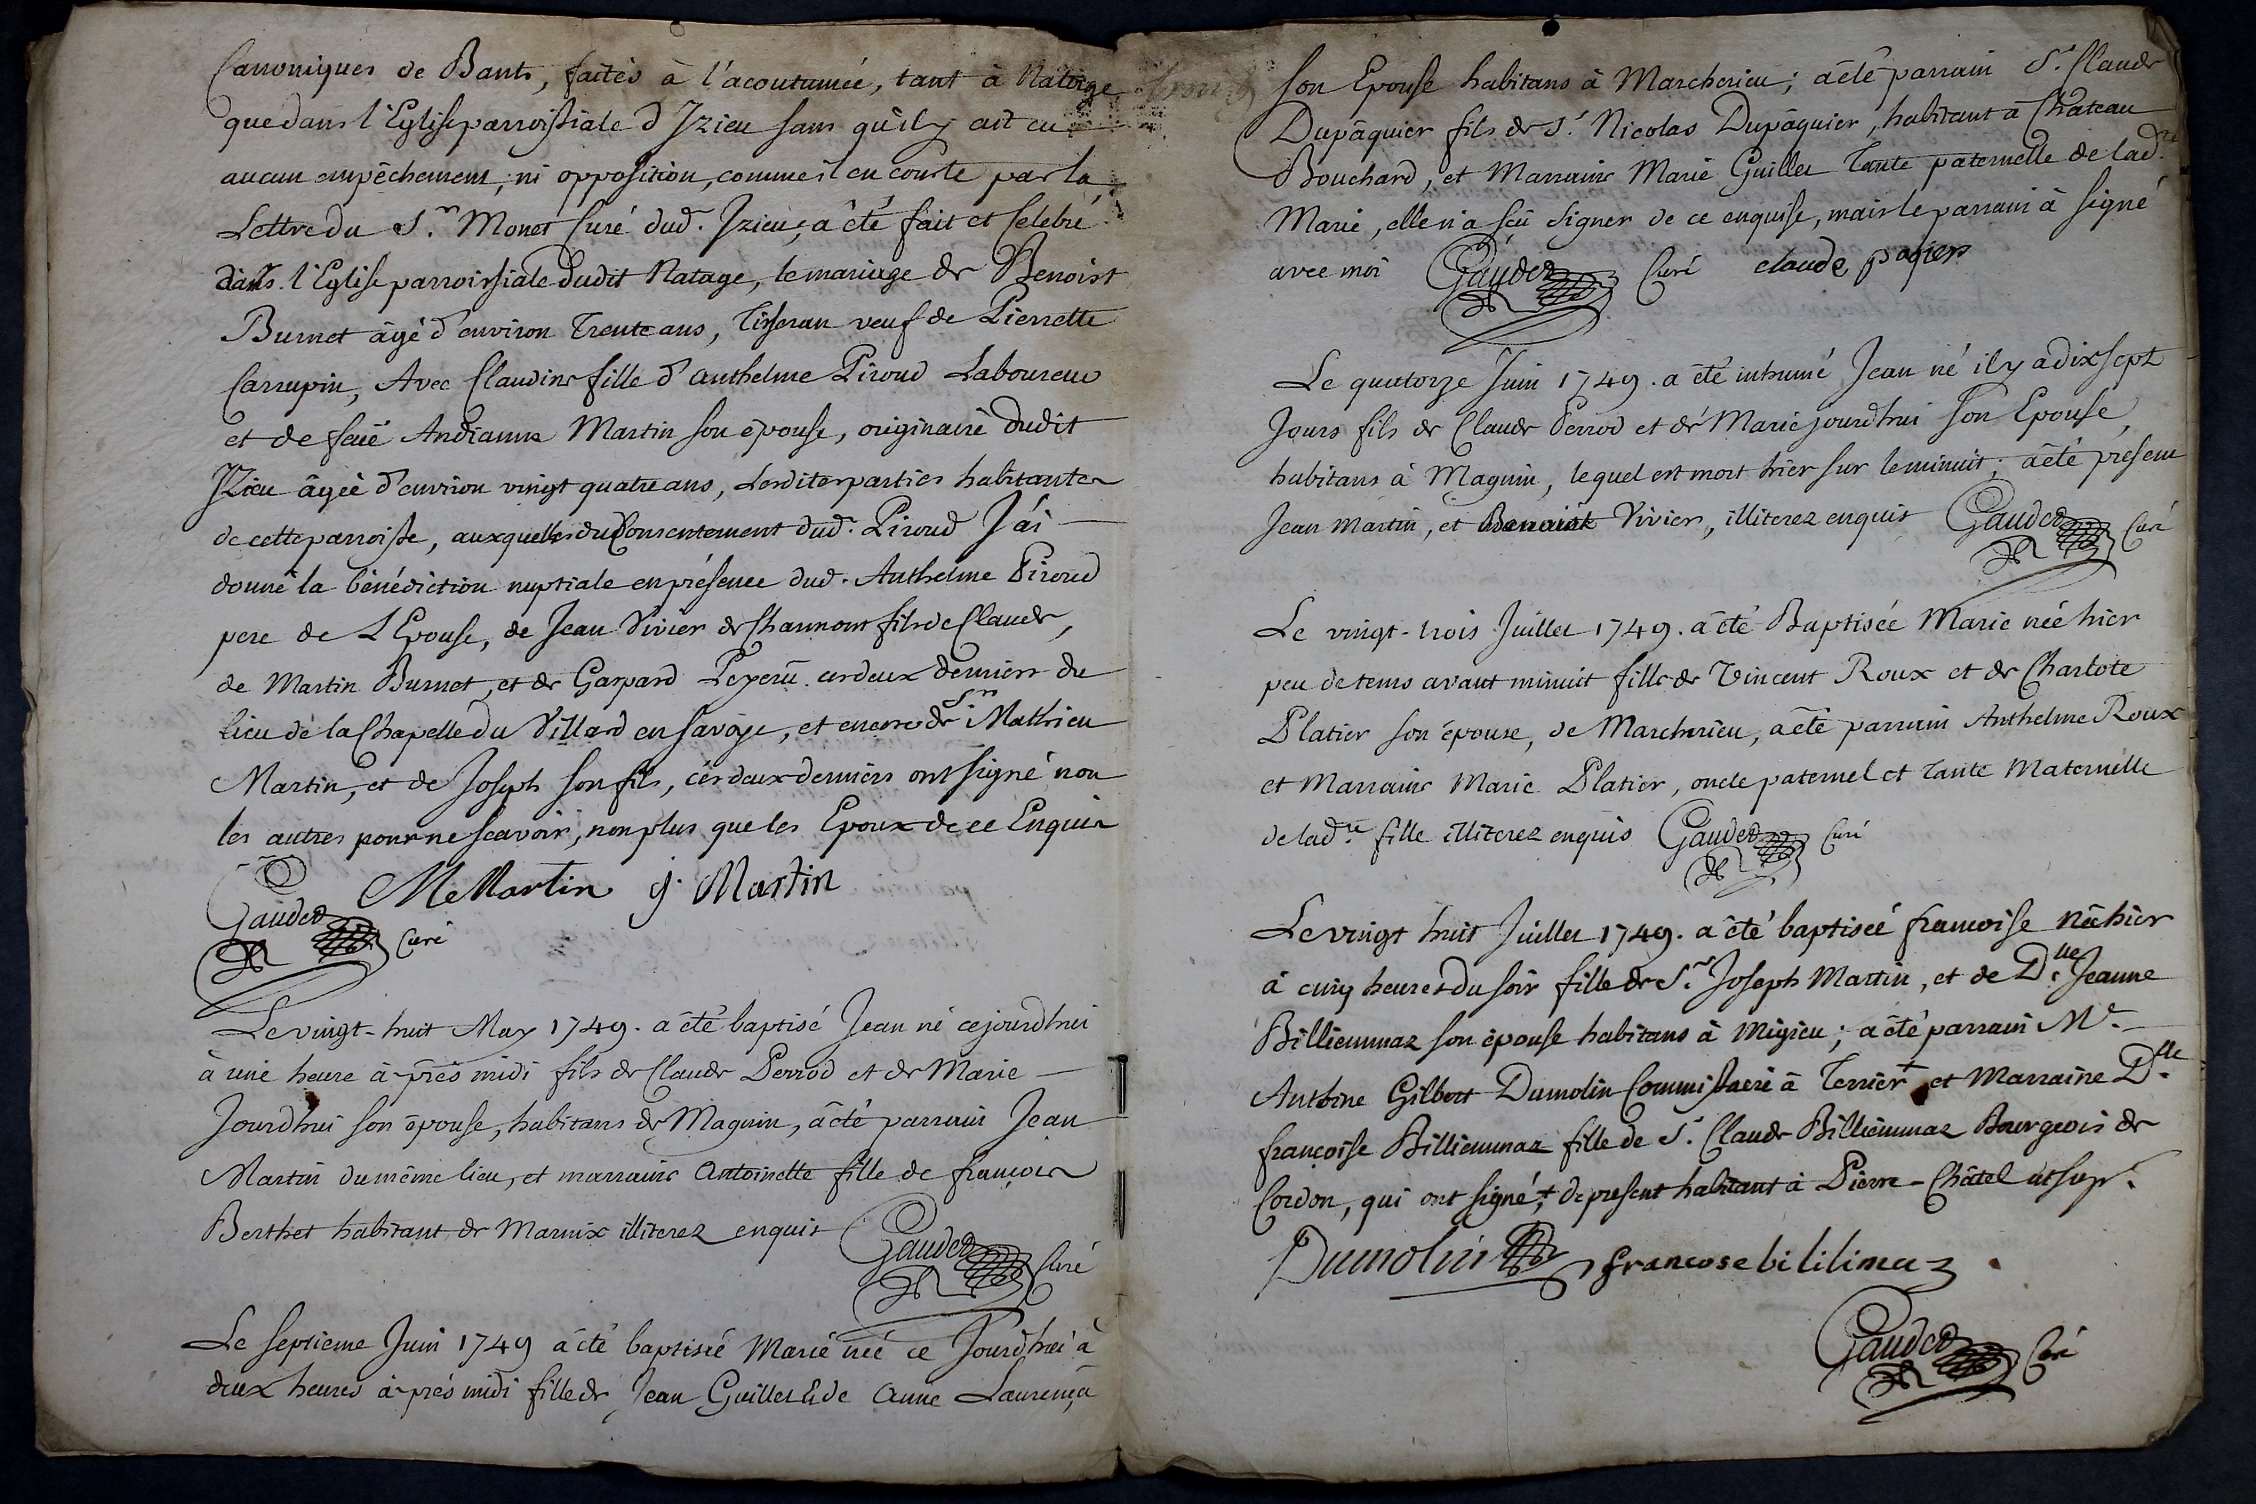 Canoniques de Bants, faites à l'acoutumée, tant à Natage
que dans l'Eglise parroissiale d'Izieu sans qu'il y ait eu
aucun empêchement, ni opposition, comme il en conste par la
Lettre du Sr. Monet Curé dud. Izieu, a été fait et Celebré
dans l'Eglise parroissiale dudit Natage, le mariage de Benoist
Burnet âgé d'environ Trente ans, Tisseran veuf de Pierrette
Carrupin, Avec Claudine fille d'Anthelme Piroud Laboureur
et de feüe Andianne Martin son épouse, originaire dudit
Izieu âgée d'environ vingt quatre ans, Lesdites parties habitantes
de cette parroisse, auxquelles du Consentement dud. Piroud J'ai
donné la bénédiction nuptiale en présence dud. Anthelme Piroud
pere de L'Epouse, de Jean Vivier de Channont fils de Claude,
de Martin Burnet, et de Gaspard ces deux derniers du
lieu de la Chapelle du Villard en Savoye, et encore de Sr. Mathieu
Martin, et de Joseph son fils, ces deux derniers ont signé non
les autres pour ne scavoir, non plus que les Epoux de ce Enquis
MeMartin j. Martin
Gauder Curé
Le vingt-huit May 1749. a été baptisé Jean né cejourdhui
à une heure à-prés midi fils de Claude Perrod et de Marie
Jourdhui son épouse, habitans de Magnin, a été parrain Jean
Martin du même lieu, et marraine Antoinette fille de françois
Berthet habitant de Marnix illiterez enquis Gauder Curé
Le septieme Juin 1749 a été baptisée Marie née ce Jourdhui à
deux heures à-prés midi fille de Jean Guillet & de Anne Laurença
son Epouse habitans à Marcherieu; a été parrain Sr. Claude
Dupâquier fils de Sr. Nicolas Dupâquier, habitant à Château
Bouchard, et Marraine Marie Guillet Tante paternelle de lad.te
Marie, elle n'a sçû signer de ce enquise, mais le parrain à signé
avec moi Gauder Curé claude paqier
Le quatorze Juin 1749. a été inhumé Jean né il y a dix sept
Jours fils de Claude Perrod et de Marie jourdhui son Epouse,
habitans à Magnin, lequel est mort hier sur le minuit; a été présent
Jean Martin, et Benoist Vivier, illiterez enquis Gauder Curé
Le vingt-trois Juillet 1749. a été Baptisée Marie née hier
peu de tems avant minuit fille de Vincent Roux et de Charlote
Platier son épouse, de Marcherieu, a été parrain Anthelme Roux
et Marraine Marie Platier, oncle paternel et Tante Maternelle
de lad.te fille illiterez enquis Gauder Curé
Le vingt huit Juillet 1749. a été baptisée françoise née hier
à cinq heures du soir fille de Sr. Joseph Martin, et de D.lle Jeanne
Billiemmaz son épouse habitans à Migieu; a été parrain Mr.
Antoine Gilbert Dumolin Commissaire à Terrier + et Marraine D.lle
françoise Billiemmaz fille de Sr. Claude Billiemmaz Bourgeois de
Cordon, qui ont signé, + de present habitant à Pierre-Châtel ut supr.
Dumolin francose bililimaz
Gauder Curé